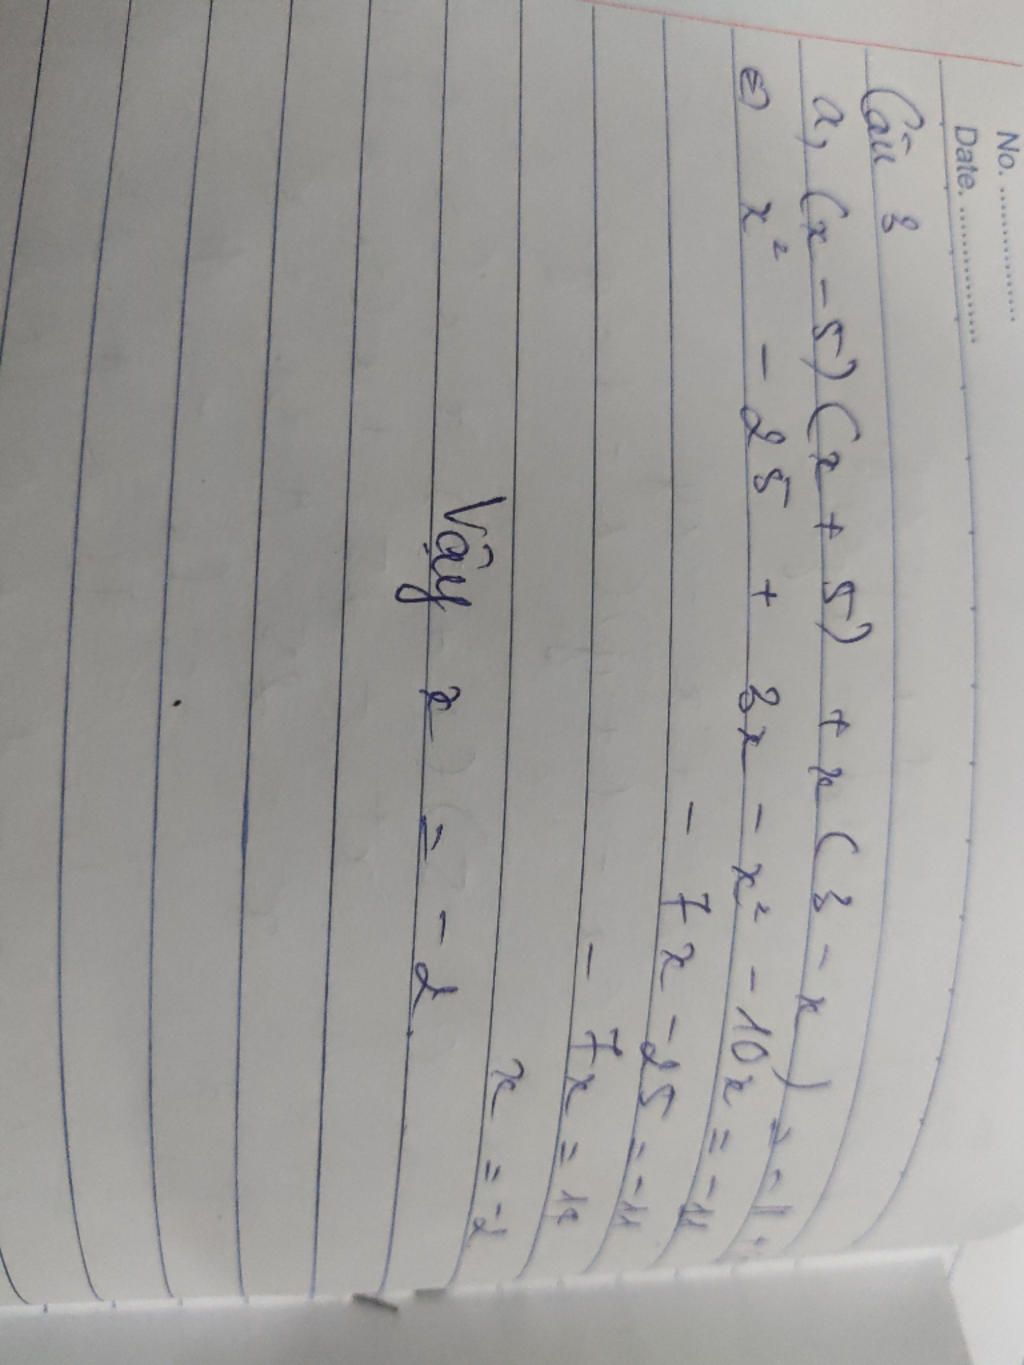 No. ................
Date. ................
Câu 3
a, (x - 5) (x + 5) + x ( 3 - x ) = - 1
⇔ x² - 25 + 3x - x² - 10x = -11
- 7x - 25 = -11
- 7x = 14
x = -2
Vậy x = - 2